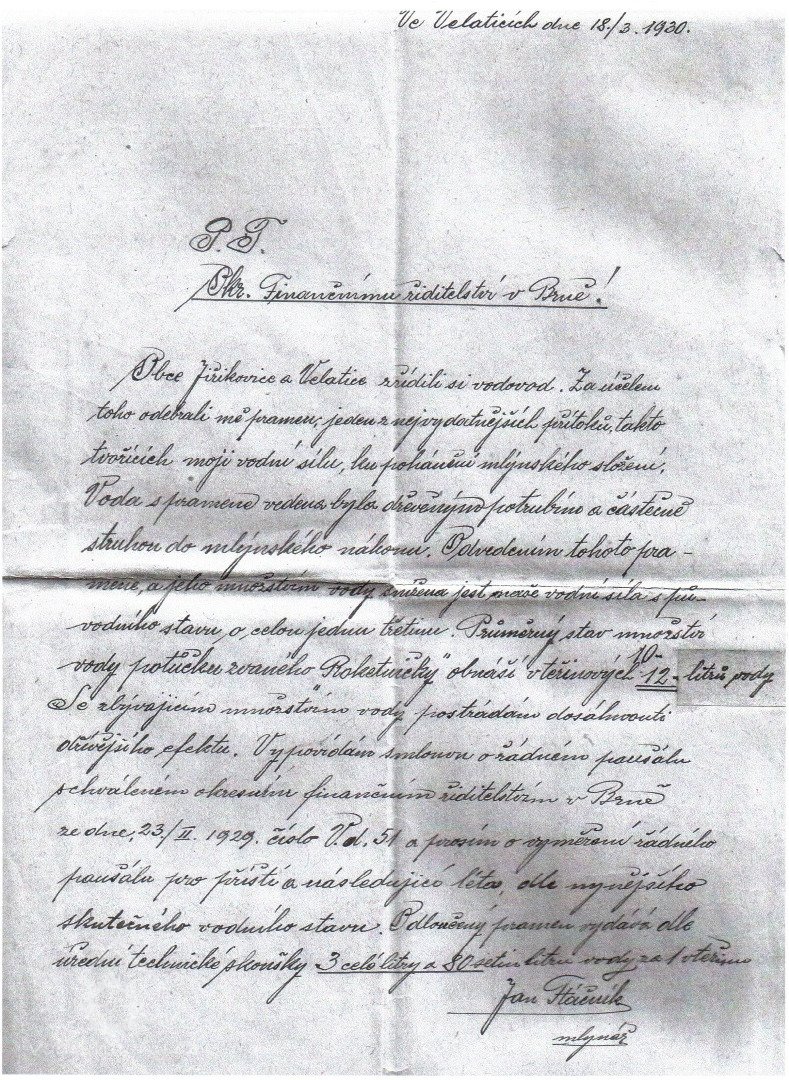 Ve Velaticích dne 18./3. 1930.
P. T.
Okr. Finančnímu ředitelství v Brně!
Obce Jiřikovice a Velatice zřídili si vodovod. Za účelem
toho odebrali mě pramen, jeden z nejvydatnějších přítoků, takto
tvořících moji vodní sílu, ku pohánění mlýnského složení.
Voda s pramene vedena byla dřevěným potrubím a částečně
struhou do mlýnského náhonu. Odvedením tohoto pra-
mene, a jeho množstvím vody snížena jest naše vodní síla s pů-
vodního stavu, o celou jednu třetinu. Průměrný stav množství
vody potůčku zvaného Roketničky" obnáší vteřinových 10-12 litrů vody
Se zbývajícím množstvím vody, postrádám dosáhnouti
dřívějšího efektu. Vypovídám smlouvu o řádném paušálu
schváleném okresním finančním ředitelstvím v Brně
ze dne, 23./II. 1929. číslo V.d. 51 a prosím o vyměření řádného
paušálu pro příští a následující léta, dle nynějšího
skutečného vodního stavu. Odloučený pramen vydává dle
úřední technické skoušky 3 celé litry a 80 setin litrů vody za 1 vteřinu
Jan Ptáčník
mlynář